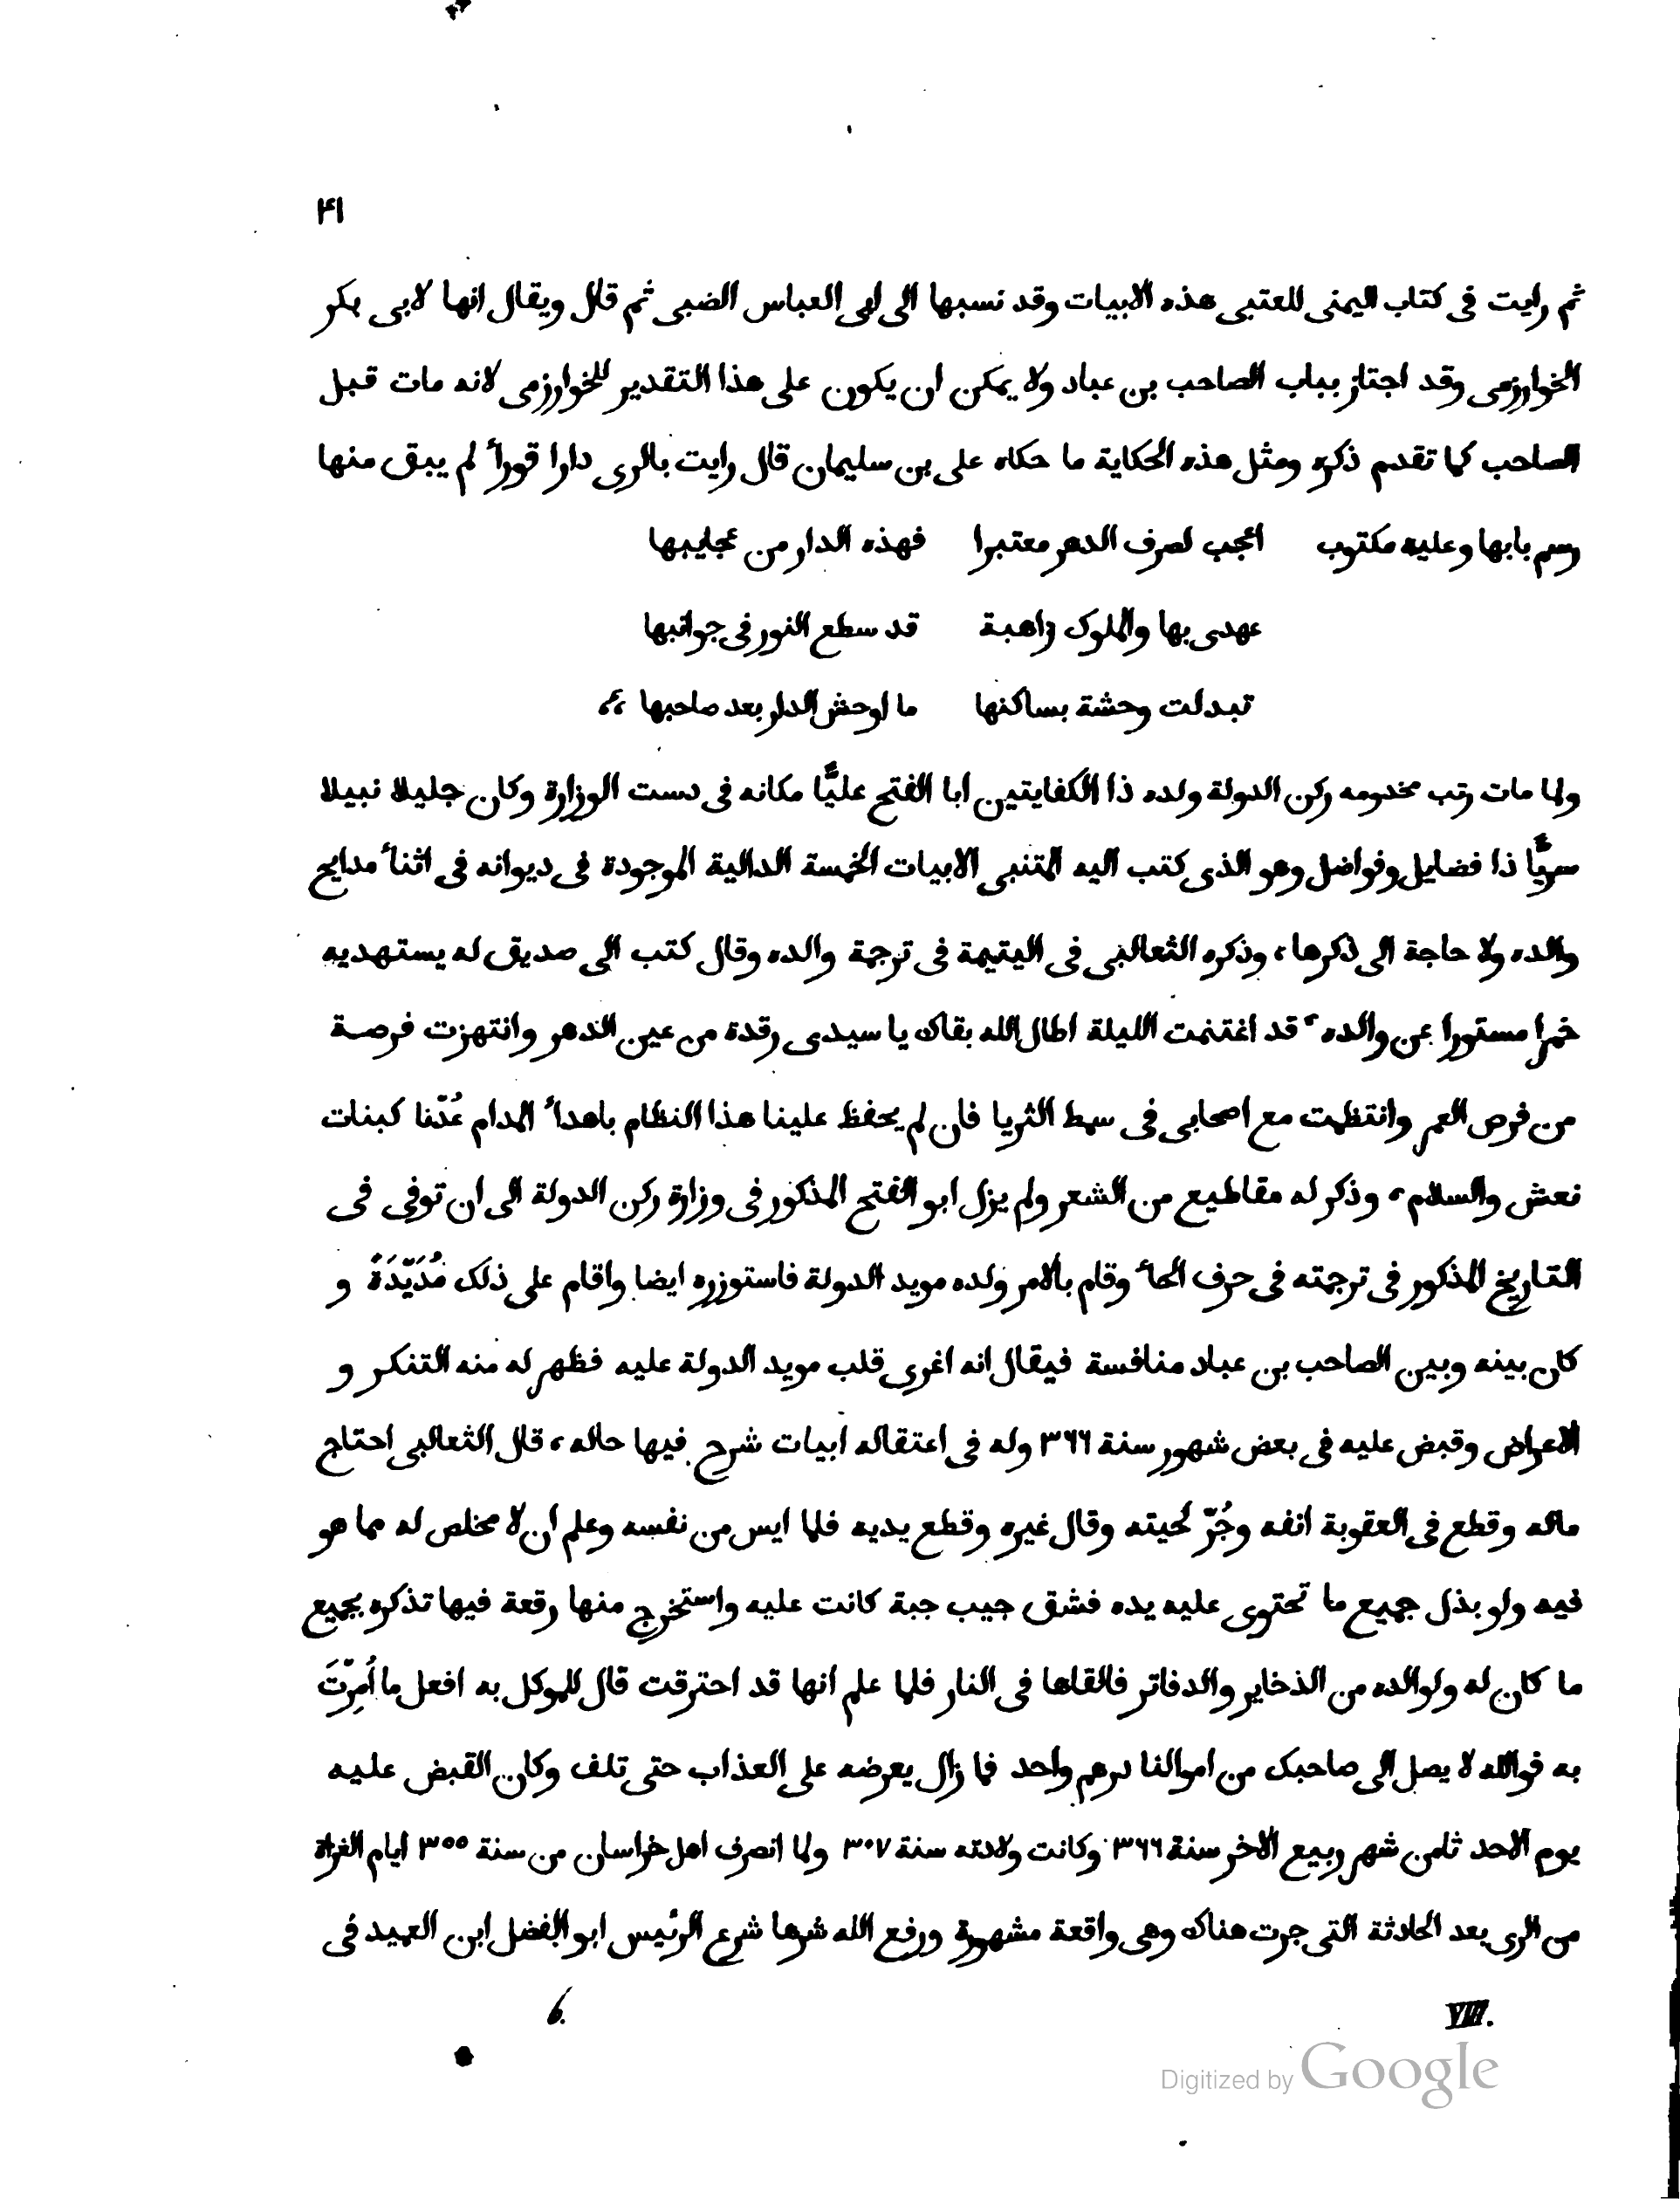 ۴۱
ثم رايت فى كتاب اليمنى للعتبى هذه الابيات وقد نسبها الى ابى العباس الضبى ثم قال ويقال انها لابى بكر
الخوارزمى وقد اجتاز بباب الصاحب بن عباد ولا يمكن ان يكون على هذا التقدير للخوارزمى لانه مات قبل
الصاحب كما تقدم ذكره ومثل هذه الحكاية ما حكاه على بن سليمان قال رايت بالرى دارا قورأ لم يبق منها
رسم بابها وعليه مكتوب اعجب لصرف الدهر معتبرا فهذه الدار من عجايبها
عهدى بها والملوك زاهية قد سطع النور فى جوانبها
تبدلت وحشة بساكنها ما اوحش الدار بعد صاحبها
ولما مات رتب مخدومه ركن الدولة ولده ذا الكفايتين ابا الفتح عليًّا مكانه فى دست الوزارة وكان جليلا نبيلا
سريًّا ذا فضايل وفواضل وهو الذى كتب اليه المتنبى الابيات الخمسة الدالية الموجودة فى ديوانه فى اثنأ مدايح
والده ولا حاجة الى ذكرها، وذكره الثعالبى فى اليتيمة فى ترجمة والده وقال كتب الى صديق له يستهديه
خمرا مستورا عن والده، قد اغتنمت الليلة اطال الله بقاك يا سيدى رقدة من عين الدهر وانتهزت فرصة
من فرص العمر وانتظمت مع اصحابى فى سمط الثريا فان لم يحفظ علينا هذا النظام باهدأ المدام عُدّنا كبنات
نعش والسلام، وذكر له مقاطيع من الشعر ولم يزل ابو الفتح المذكور فى وزارة ركن الدولة الى ان توفى فى
التاريخ المذكور فى ترجمته فى حرف الحأ وقام بالامر ولده مويد الدولة فاستوزره ايضا واقام على ذلك مُدَيّدَةً و
كان بينه وبين الصاحب بن عباد منافسة فيقال انه اغرى قلب مويد الدولة عليه فظهر له منه التنكر و
الاعراض وقبض عليه فى بعض شهور سنة ٣٦٦ وله فى اعتقاله ابيات شرح فيها حاله، قال الثعالبى احتاج
ماله وقطع فى العقوبة انفه وجُزّ لحيته وقال غيره وقطع يديه فلما ايس من نفسه وعلم ان لا مخلص له مما هو
فيه ولو بذل جميع ما تحتوى عليه يده فشق جيب جبة كانت عليه واستخرج منها رقعة فيها تذكره بجميع
ما كان له ولوالده من الذخاير والدفاتر فالقاها فى النار فلما علم انها قد احترقت قال للموكل به افعل ما اُمِرّتَ
به فوالله لا يصل الى صاحبك من اموالنا درهم واحد فما زال يعرضه على العذاب حتى تلف وكان القبض عليه
يوم الاحد ثامن شهر ربيع الاخر سنة ٣٦٦ وكانت ولادته سنة ٣٠٧ ولما انصرف اهل خراسان من سنة ٣٥٥ ايام الغزاة
من الرى بعد الحادثة التى جرت هناك وهى واقعة مشهورة ورفع الله شرها شرع الرئيس ابو الفضل ابن العميد فى
VIII. 6.
Digitized by Google